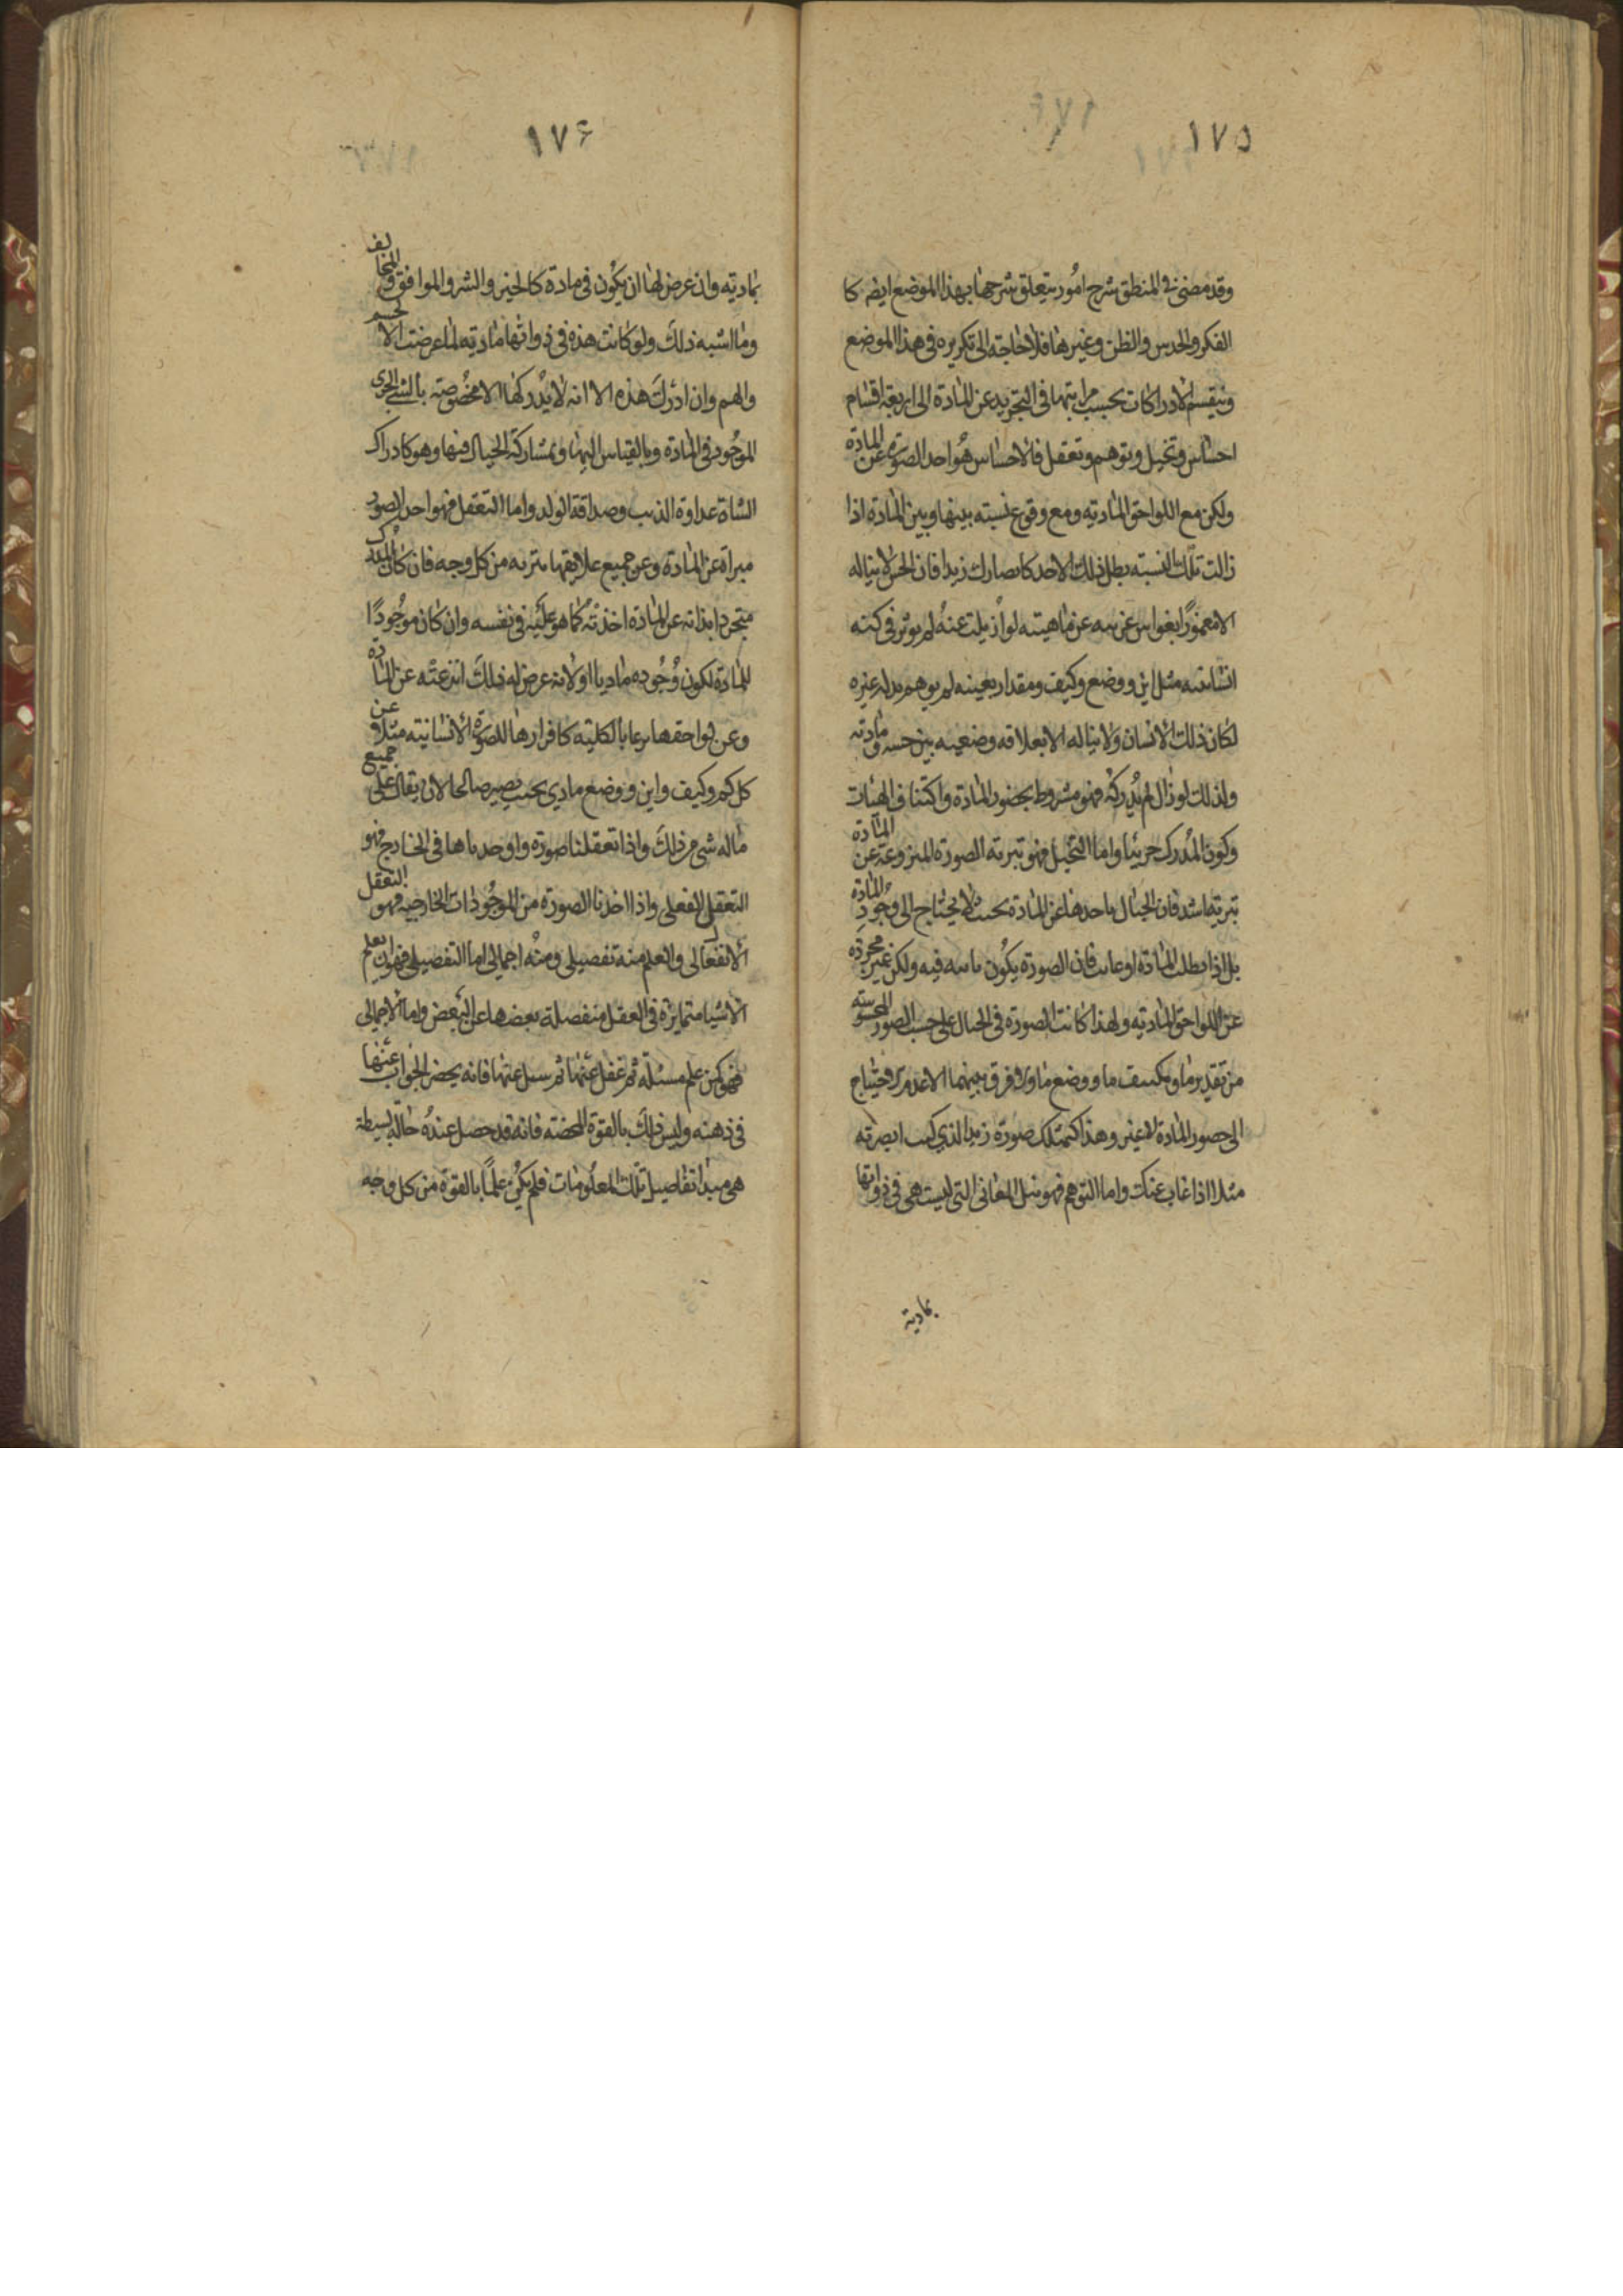 ١٧٥
وقد مضى فى المنطق شرح امُور يتعلق شرحها بهذا الموضع ايضه كا
الفكر والحدس والظن وغيرها فلا حاجة الى تكريره فى هذا الموضع
وينقسم الادراكات بحسب مراتبها فى التجريد عن المادة الى اربعة اقسام
احساس وتخيل وتوهم وتعقل فالاحساس هُو اخذ الصورة عن المادة
ولكن مع اللواحق المادية ومع وقوع نسبته بينها وبين المادة اذا
زالت تلك النسبة بطل ذلك الاخذ كابصارك زيدا فان الحس لا يناله
الا مغمورًا بغواش غريبه عن ماهيته لو ازيلت عنهُ لم يوثر فى كنه
انسانيته مثل اين ووضع وكيف ومقدار بعينه لم يوهم بدله غيره
لكان ذلك الانسان ولا يناله الا بعلاقه وضعيه بين حسه ومادته
ولذلك لو زال لم يُدركهُ فهو مشروط بحضور المادة واكتناف الهيئات
وكون المُدرك جزئيا واما التخيل فهو تبرئه الصورة المنزوعة عن المادة
تبرية اشد فان الخيال ياخذها عن المادة بحيث لا يحتاج الى وُجُودِ المادة
بل اذا بطلت المادة او غابت فان الصورة يكُون ثابته فيه ولكن غير مجردة
عن اللواحق المادية ولهذا كانت الصورة فى الخيال على حسب الصور المحسوسة
من تقدير ما وتكييف ما ووضع ما ولا فرق بينهما الا عدم الاحتياج
الى حضور المادة لا غير وهذا كتمثلك صورة زيد الذي كنت ابصرته
مثلا اذا غاب عنك واما التوهم فهو نيل المعانى التى ليست هى فى ذواتها
بمادية
١٧۶
بمادية وان عرض لها ان يكُون فى مادة كالخير والشر والموافق والمخالف
وما اشبه ذلك ولو كانت هذه فى ذواتها مادية لما عرضت الا لجسم
والهم وان ادرك هذه الا انه لا يدركها الا مخصُوصة بالشى الجزى
الموجُود فى المادة وبالقياس اليها وبمشاركة الخيال فيها وهو كادراك
الشاة عداوة الذيب وصداقة الولد واما التعقل فهو اخذ الصور
مبراة عن المادة وعن جميع علايقها تبرئه من كل وجه فان كان المدرك
متجردا بذاته عن المادة اخذته كما هو عليه فى نفسه وان كان موجُودًا
للمادة لكون وُجُوده ماديا او لانه عرض له ذلك انتزعته عن المادة
وعن لواحقها نزعا بالكلية كافرازها للصورة الانسانية مثلا عن
كل كم وكيف واين ووضع مادي بحيث يصير صالحا لان يقال على جميع
ماله شى من ذلك واذا تعقلنا صورة واوجدناها فى الخارج فهو
التعقل الفعلى واذا اخذنا الصورة من الموجُودات الخارجية فهو التعقل
الانفعالى والعلم منه تفصيلى ومنهُ اجمالى اما التفصيلى فهو ان يعلم
الاشيا متمايزة فى العقل منفصلة بعضها عن البعض واما الاجمالى
فهو كمن علم مسئلة ثم غفل عنها ثم سئل عنها فانه يحضر الجواب عنها
فى ذهنه وليس ذلك بالقوة المحضة فانه قد حصل عندهُ حالة بسيطة
هى مبدا تفاصيل تلك المعلُومات فلم يكن علمًا بالقوة من كل وجه